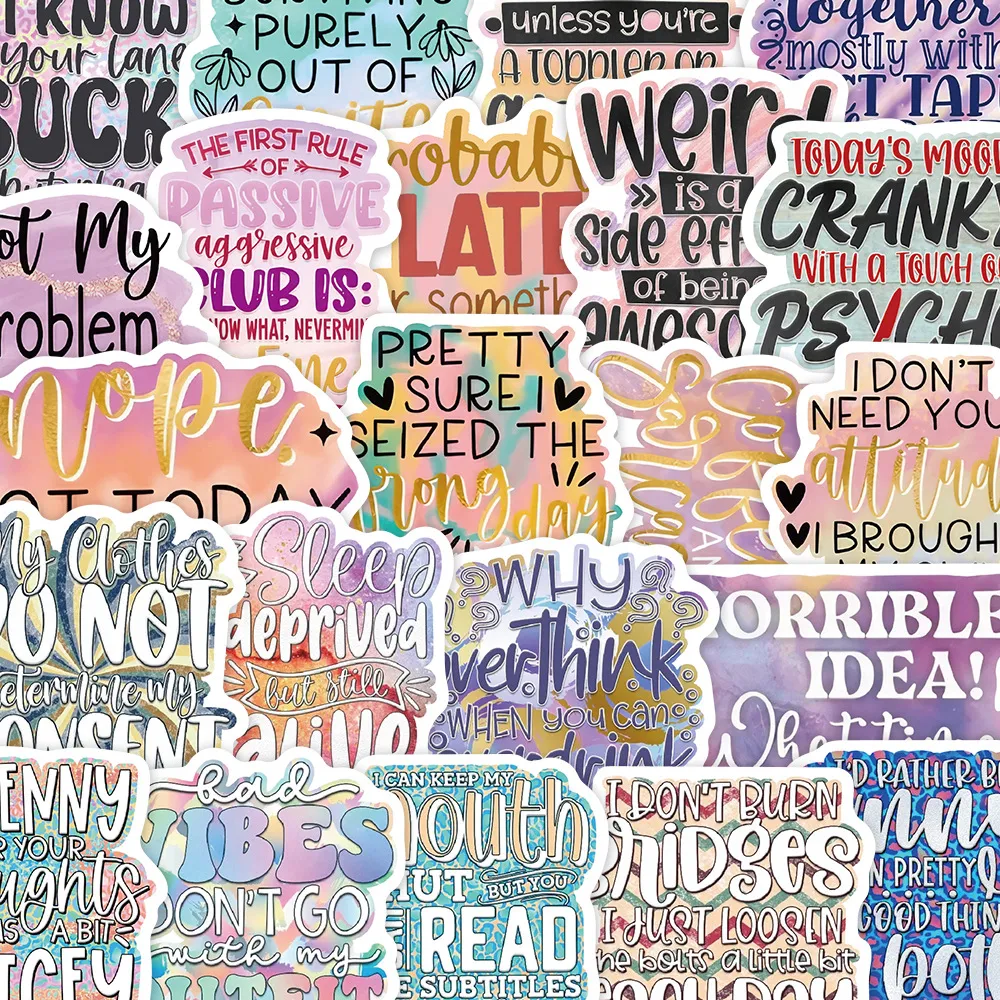 I KNOW
your lane
SUCK
PURELY
OUT OF
unless you're
A TODDLER OR
together
mostly with
THE FIRST RULE
OF
PASSIVE
aggressive
CLUB IS:
NOW WHAT, NEVERMIN
Fine
obab
LATE
r someth
weird
is a
Side eff
of being
awesо
TODAY'S MOOD
CRANKY
WITH A TOUCH OF
PSYCH
ot My
roblem
nope
OT TODAY
PRETTY
SURE I
SEIZED THE
wrong day
I DON'T
NEED YOU
attitud
I BROUGH
My Clothes
DO NOT
determine my
CONSENT
Sleep
deprived
but still
alive
WHY
overThink
WHEN you can
overdrink
ORRIBLE
IDEA!
What time
ENNY
R YOUR
oughts
AS A BIT
ICEY
bad
VIBES
DON'T GO
with my
OUTFIT
I CAN KEEP MY
mouth
HUT
BUT YOU
READ
E SUBTITLES
I DON'T BURN
bridges
I JUST LOOSEN
the bolts a little bit
EACH DAY
I'D RATHER BE
N PRETTY
GOOD THIN
bot